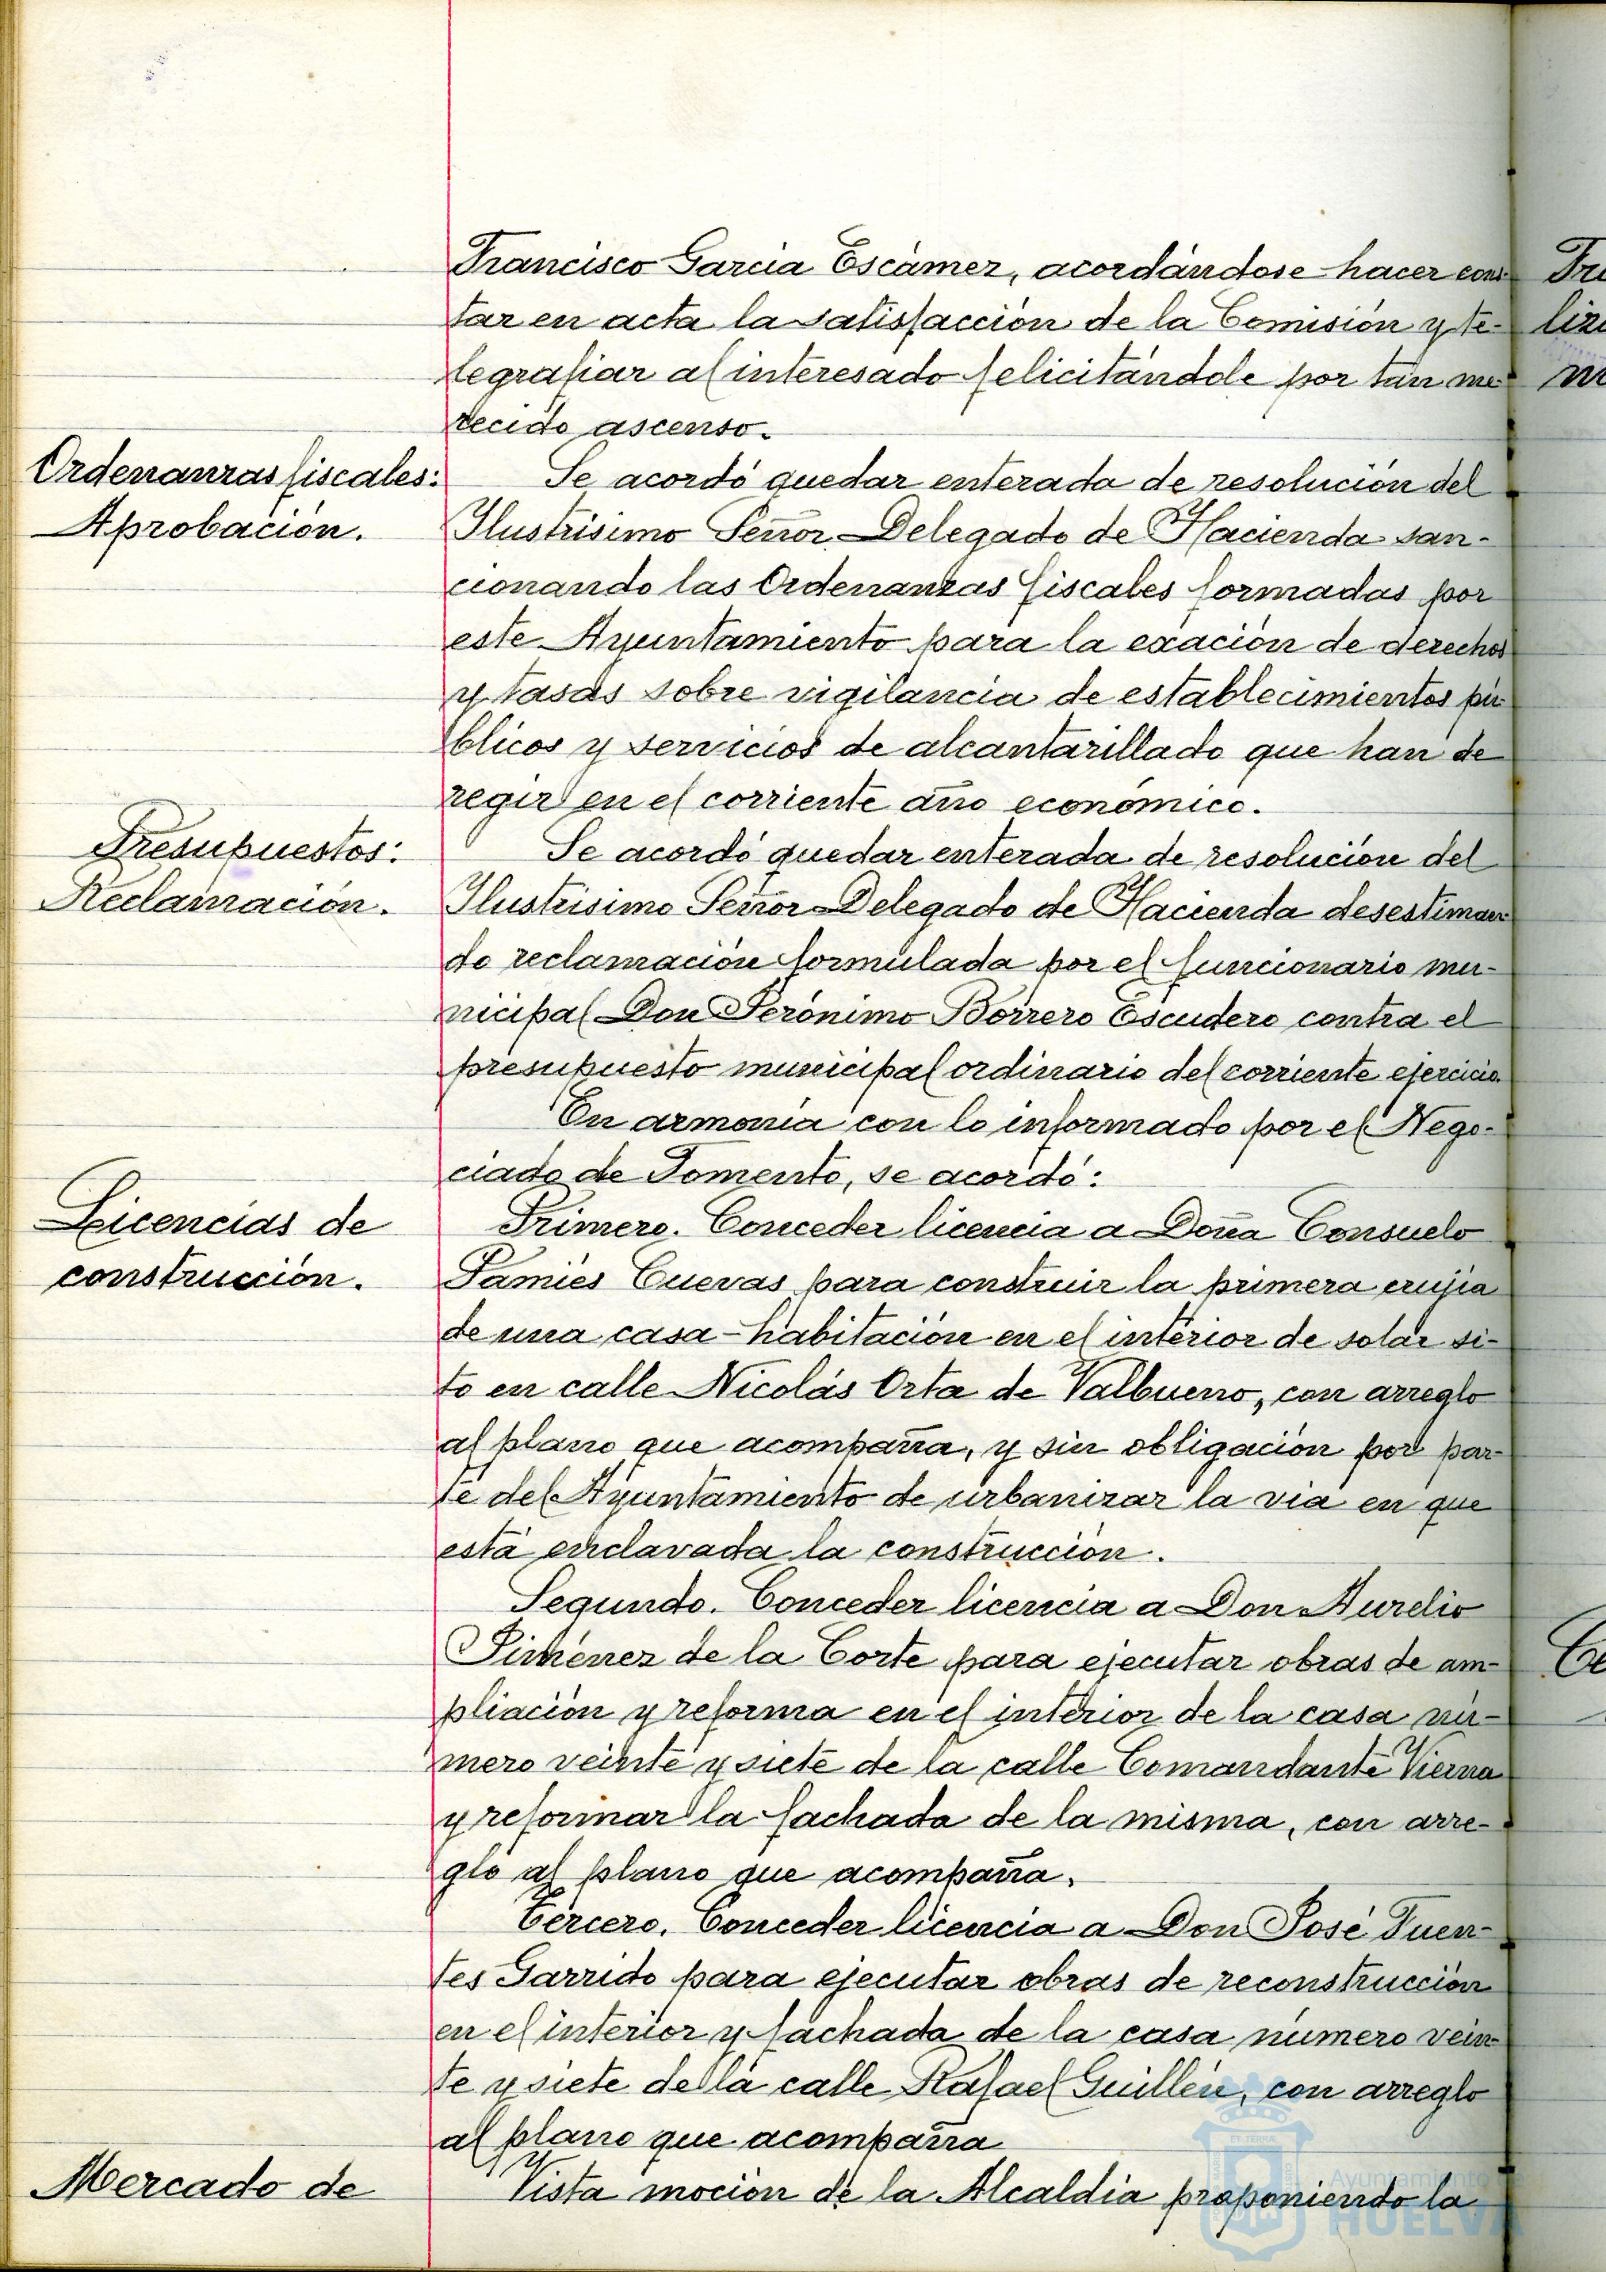 Francisco García Escámez, acordándose hacer cons-
tar en acta la satisfacción de la Comisión y te-
legrafiar al interesado felicitándole por tan me-
recido ascenso.
Ordenanzas fiscales:
Aprobación.
Se acordó quedar enterada de resolución del
Ilustrísimo Señor Delegado de Hacienda san-
cionando las Ordenanzas fiscales formadas por
este Ayuntamiento para la exación de derechos
y tasas sobre vigilancia de establecimientos pú-
blicos y servicios de alcantarillado que han de
regir en el corriente año económico.
Presupuestos:
Reclamación.
Se acordó quedar enterada de resolución del
Ilustrísimo Señor Delegado de Hacienda desestiman-
do reclamación formulada por el funcionario mu-
nicipal Don Jerónimo Borrero Escudero contra el
presupuesto municipal ordinario del corriente ejercicio.
En armonía con lo informado por el Nego-
ciado de Fomento, se acordó:
Licencias de
construcción.
Primero. Conceder licencia a Doña Consuelo
Pamies Cuevas para construir la primera crujía
de una casa-habitación en el interior de solar si-
to en calle Nicolás Orta de Valbueno, con arreglo
al plano que acompaña, y sin obligación por par-
te del Ayuntamiento de urbanizar la vía en que
está enclavada la construcción.
Segundo. Conceder licencia a Don Aurelio
Jiménez de la Corte para ejecutar obras de am-
pliación y reforma en el interior de la casa nú-
mero veinte y siete de la calle Comandante Vierna
y reformar la fachada de la misma, con arre-
glo al plano que acompaña.
Tercero. Conceder licencia a Don José Fuen-
tes Garrido para ejecutar obras de reconstrucción
en el interior y fachada de la casa número vein-
te y siete de la calle Rafael Guillén, con arreglo
al plano que acompaña
Mercado de
Vista moción de la Alcaldía proponiendo la
Ayuntamiento
HUELVA